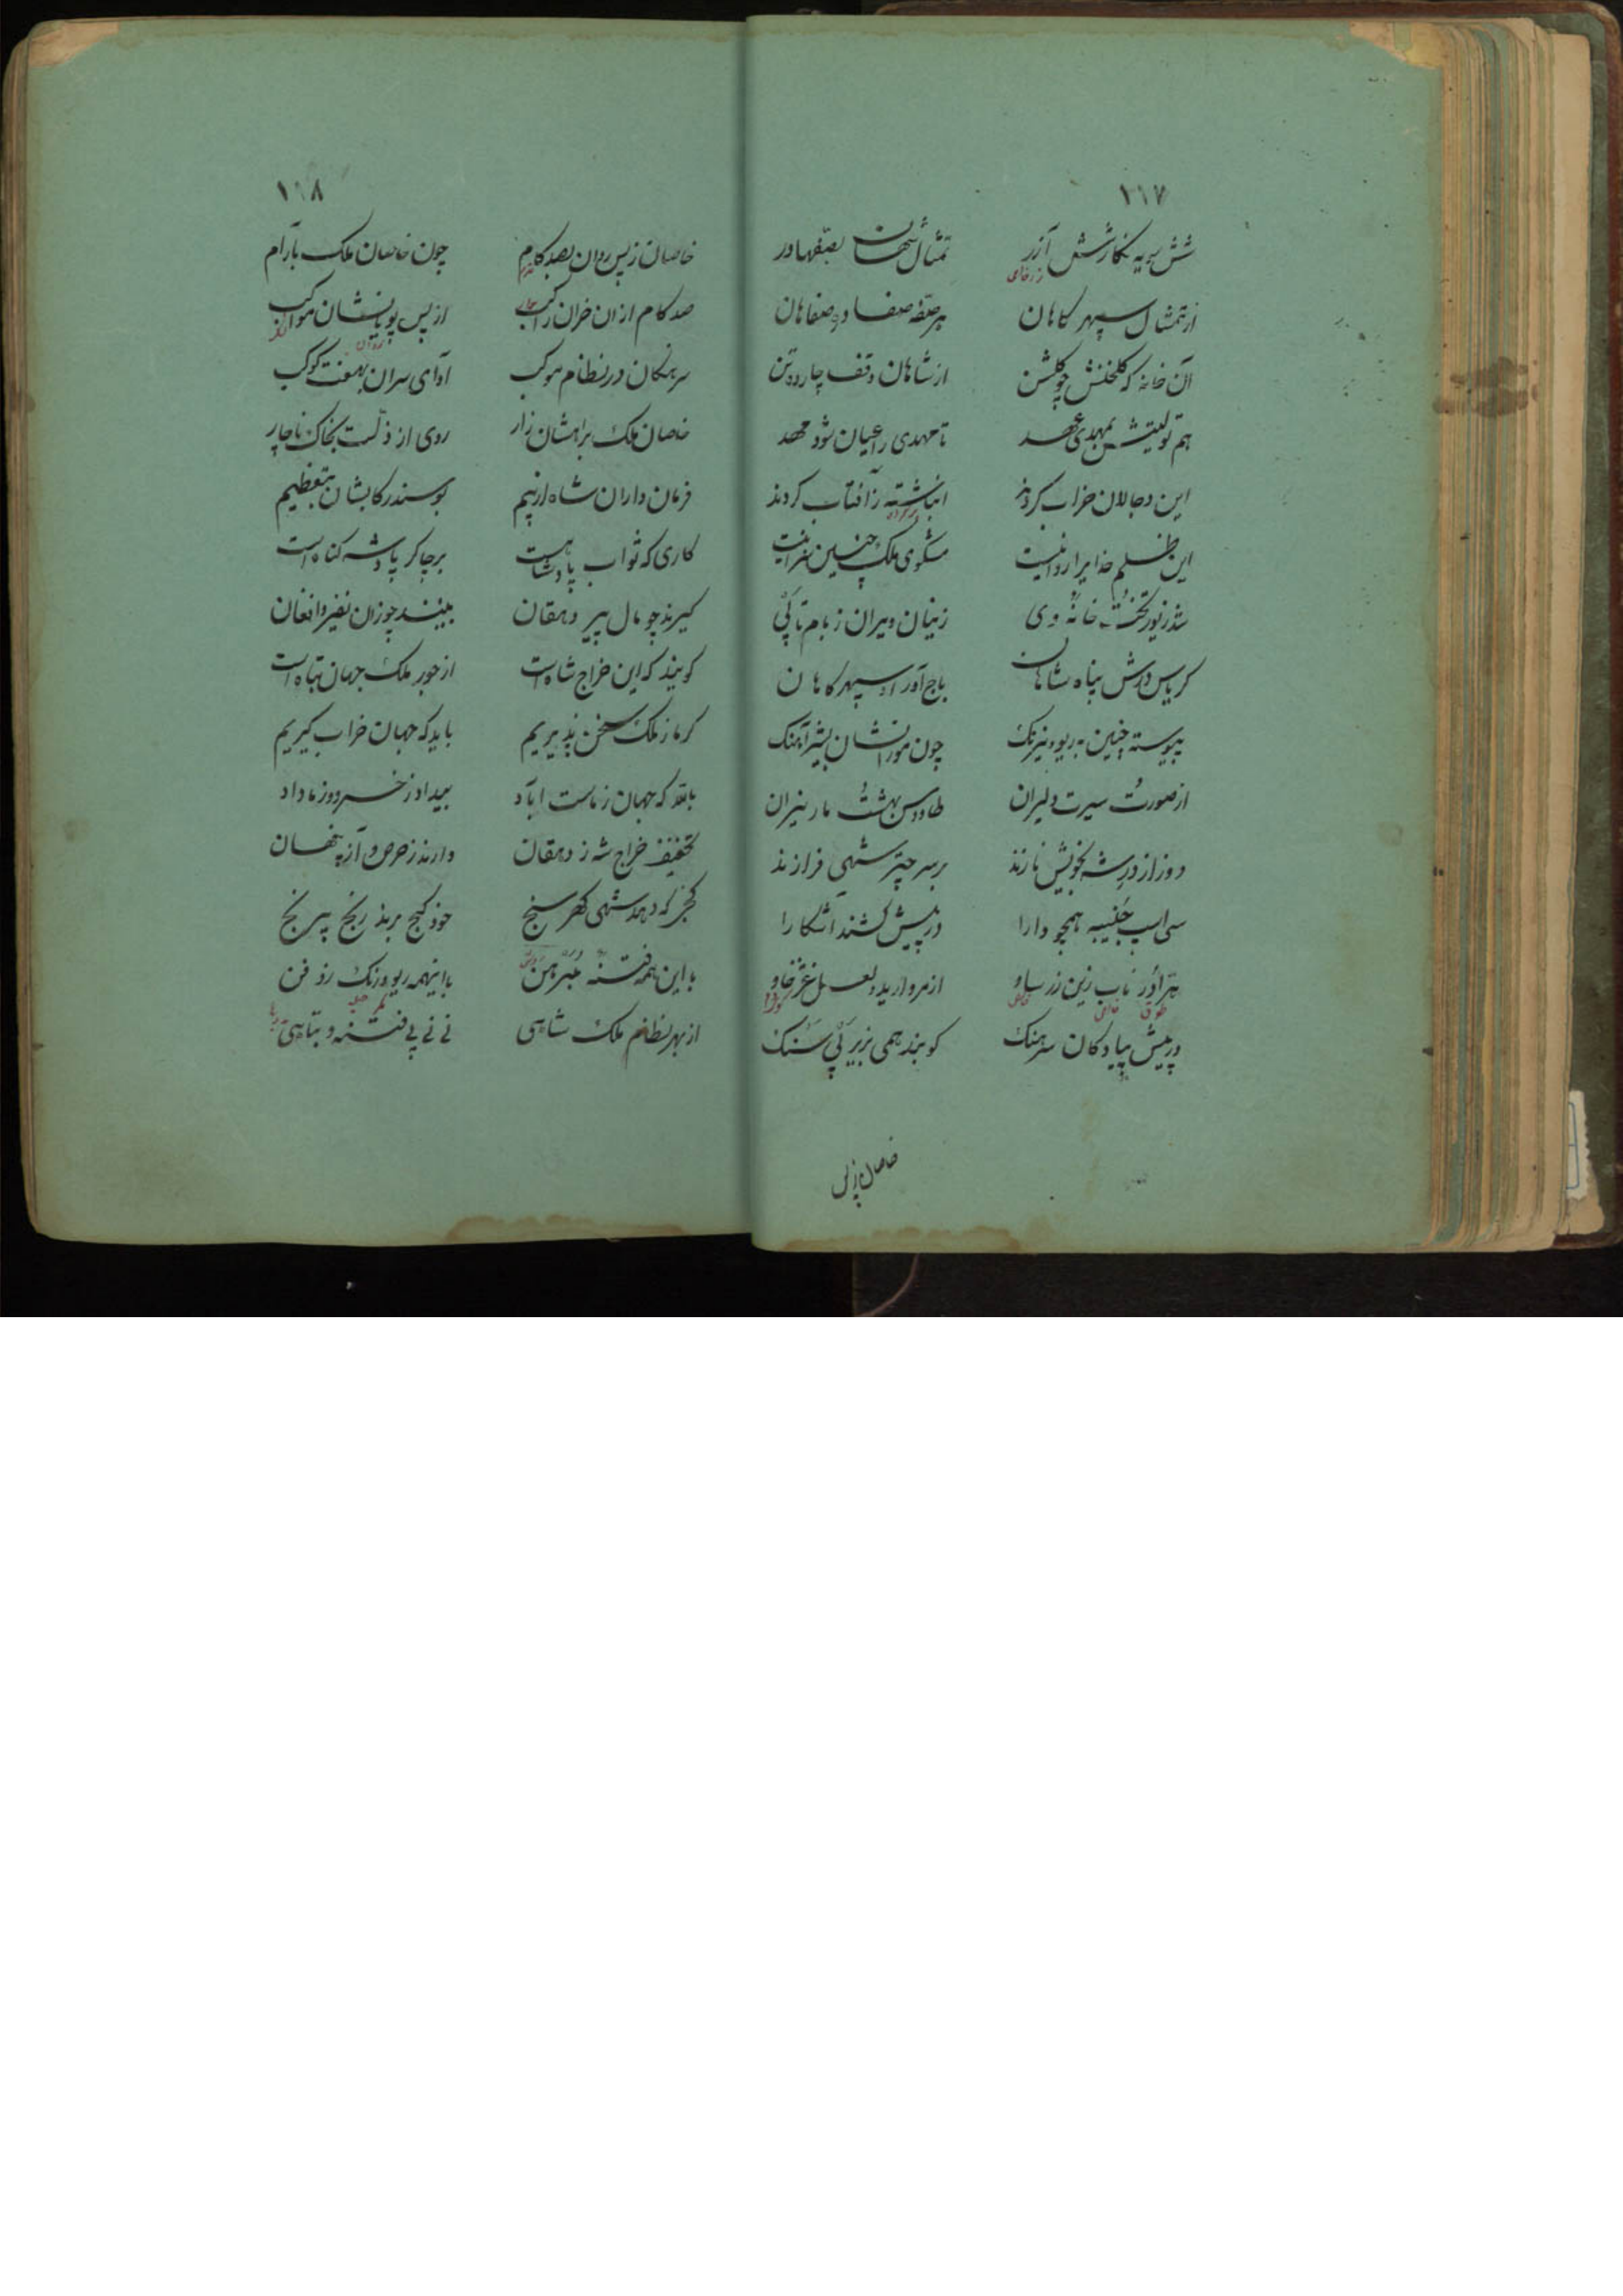 ۱۱۷
شش سویه نگارشش آزر تمثال شهان بصفهادر
از تمثال سپهر گاهان هر صفه صفا ده صفاهان
آن خانه که گلخنش چو گلشن از شاهان وقف چارده تن
هم تولیتش بمهدی عهد تا مهدی را عیان شود مهد
این دجالان خراب کردند انباشته ز آفتاب کردند
این ظلم خدایرا روا نیست مشکوی ملک چنین سزا نیست
خانه وی زینان ویران ز بام تا پی
کریاس درش پناه شاهان باج آور او سپهر گاهان
پیوسته چنین به ریو و نیرنگ چون مورانشان
از صورت سیرت دلیران طاووس بهشت مار نیران
دور از در شه بخویش نازند بر سر چتر شهی فرازند
سی اسپ جنیبه همچو دارا در پیش کشند آشکارا
ناب زین زر ساو از مروارید و لعل
در پیش پیادگان سرهنگ گویند همی بزیر پی سنگ
خاصان زپس
۱۱۸
خاصان ز پس روان بصد گام چون خاصان ملک بآرام
صد گام از آن خران راکب از پس پویانشان مواکب
سرهنگان در نظام موکب آوای سران بهفت کوکب
خاصان ملک براهشان زار روی از ذلت بخاک ناچار
فرمان داران شاه از بیم بوسند رکابشان بتعظیم
کاری که ثواب پادشاهست بر چاکر پادشه گناه است
گیرند چو مال پیر دهقان بینند چو زان نفیر و افغان
گویند که این خراج شاه است از جور ملک جهان تباه است
گر ما ز ملک سخن پذیریم باید که جهان خراب گیریم
بالله که جهان ز ماست آباد بیداد ز خسرو و ز ما داد
تخفیف خراج شه ز دهقان دارند ز حرص و آز پنهان
گنجی که دهد شهی گهر سنج خود گنج برند رنج پی رنج
با این همه فتنه مبرهن با اینهمه ریو و رنگ
از بهر نظام ملک شاهی نی نی پی فتنه و تباهی